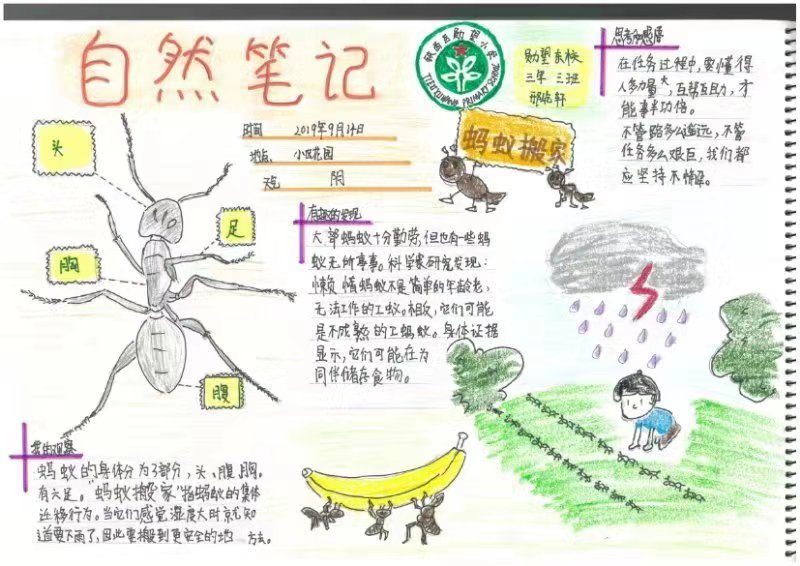 自然笔记
勋望东校
三年三班
时间 2019年9月14日
地点 小区花园
天气 阴
蚂蚁搬家
思考和感悟
在任务过程中,要懂得
人多力量大,互帮互助,才
能事半功倍。
不管路多么遥远,不管
任务多么艰巨,我们都
应坚持不懈。
头
足
胸
腹
有趣的发现
大部蚂蚁十分勤劳,但也有一些蚂
蚁无所事事。科学家研究发现:
懒惰蚂蚁不是简单的年龄老,
无法工作的工蚁。相反,它们可能
是不成熟的工蚂蚁。身体证据
显示,它们可能在为
同伴储存食物。
我的观察
蚂蚁的身体分为3部分,头、腹、胸。
有六足。“蚂蚁搬家”指蚂蚁的集体
迁移行为。当它们感觉湿度大时就知
道要下雨了,因此要搬到更安全的地方去。